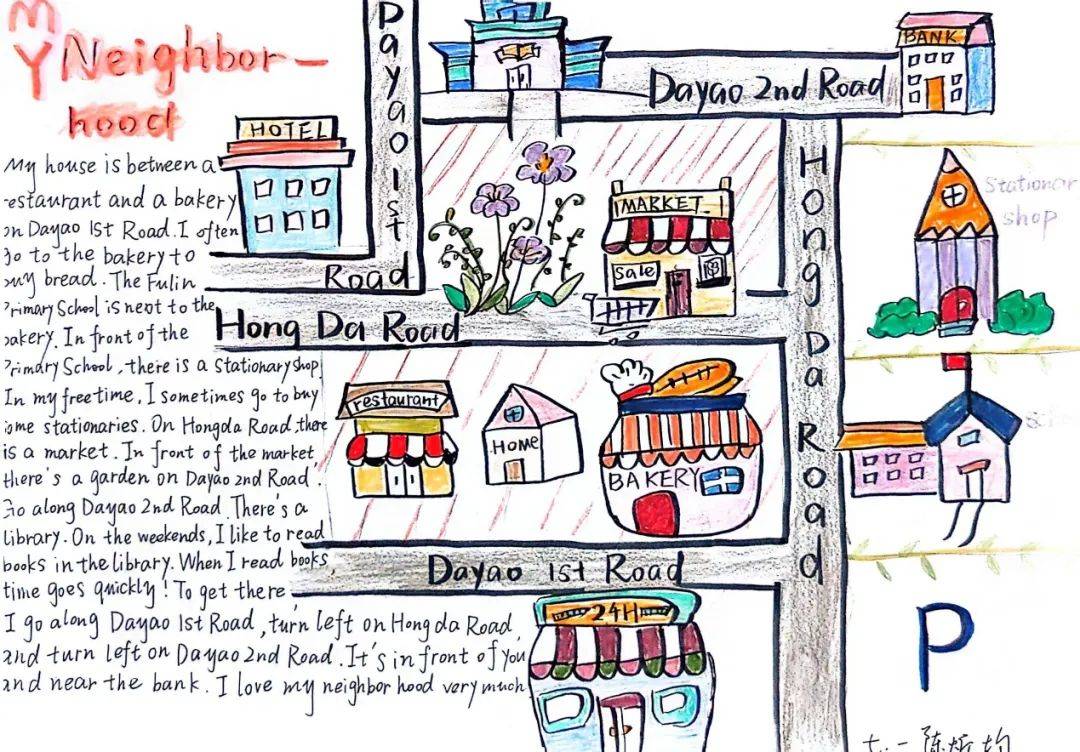 MY Neighbor-
hood
My house is between a
estaurant and a bakery
on Dayao 1st Road. I often
go to the bakery to
buy bread. The Fulin
Primary School is next to the
bakery. In front of the
Primary School, there is a Stationary shop
In my free time, I sometimes go to buy
ome stationaries. On Hongda Road, there
is a market. In front of the market
there's a garden on Dayao 2nd Road.
Go along Dayao 2nd Road. There's a
library. On the weekends, I like to read
books in the library. When I read books,
time goes quickly! To get there
I go along Dayao 1st Road, turn left on Hongda Road,
and turn left on Dayao 2nd Road. It's in front of you
and near the bank. I love my neighbor hood very much
HOTEL
Dayao 1st
Road
Dayao 2nd Road
BANK
MARKET
Sale
Hong Da Road
Hong Da Road
Stationar
shop
restaurant
HOME
BAKERY
Dayao 1st Road
24H
P